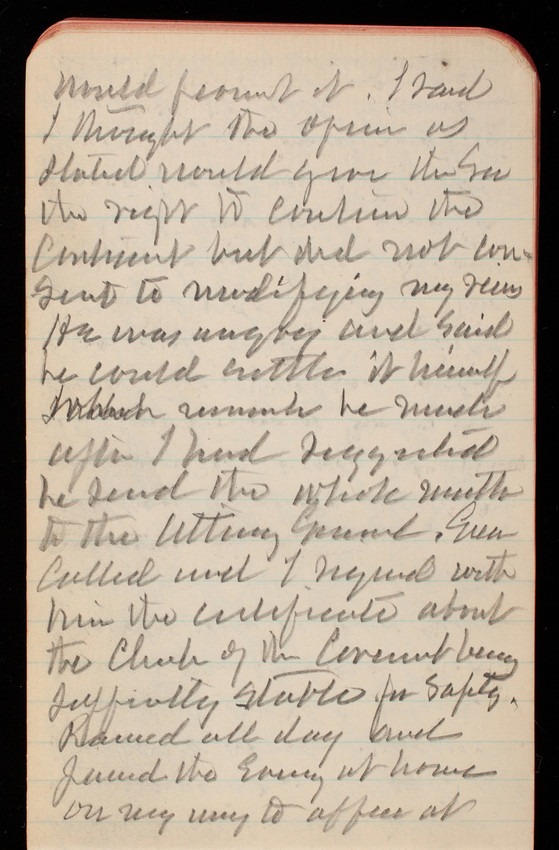 would permit it. I said
I thought the opinion as
stated would give the Sec
the right to continue the
Contract but did not con-
sent to modifying my views
He was angry and said
he could settle it himself
which remark he made
after I had suggested
he send the whole matter
to the Attorney General. Green
Called and I signed with
him the certificate about
the Church of the Covenant being
sufficiently stable for safety.
Rained all day and
passed the Evening at home
on my way to office at